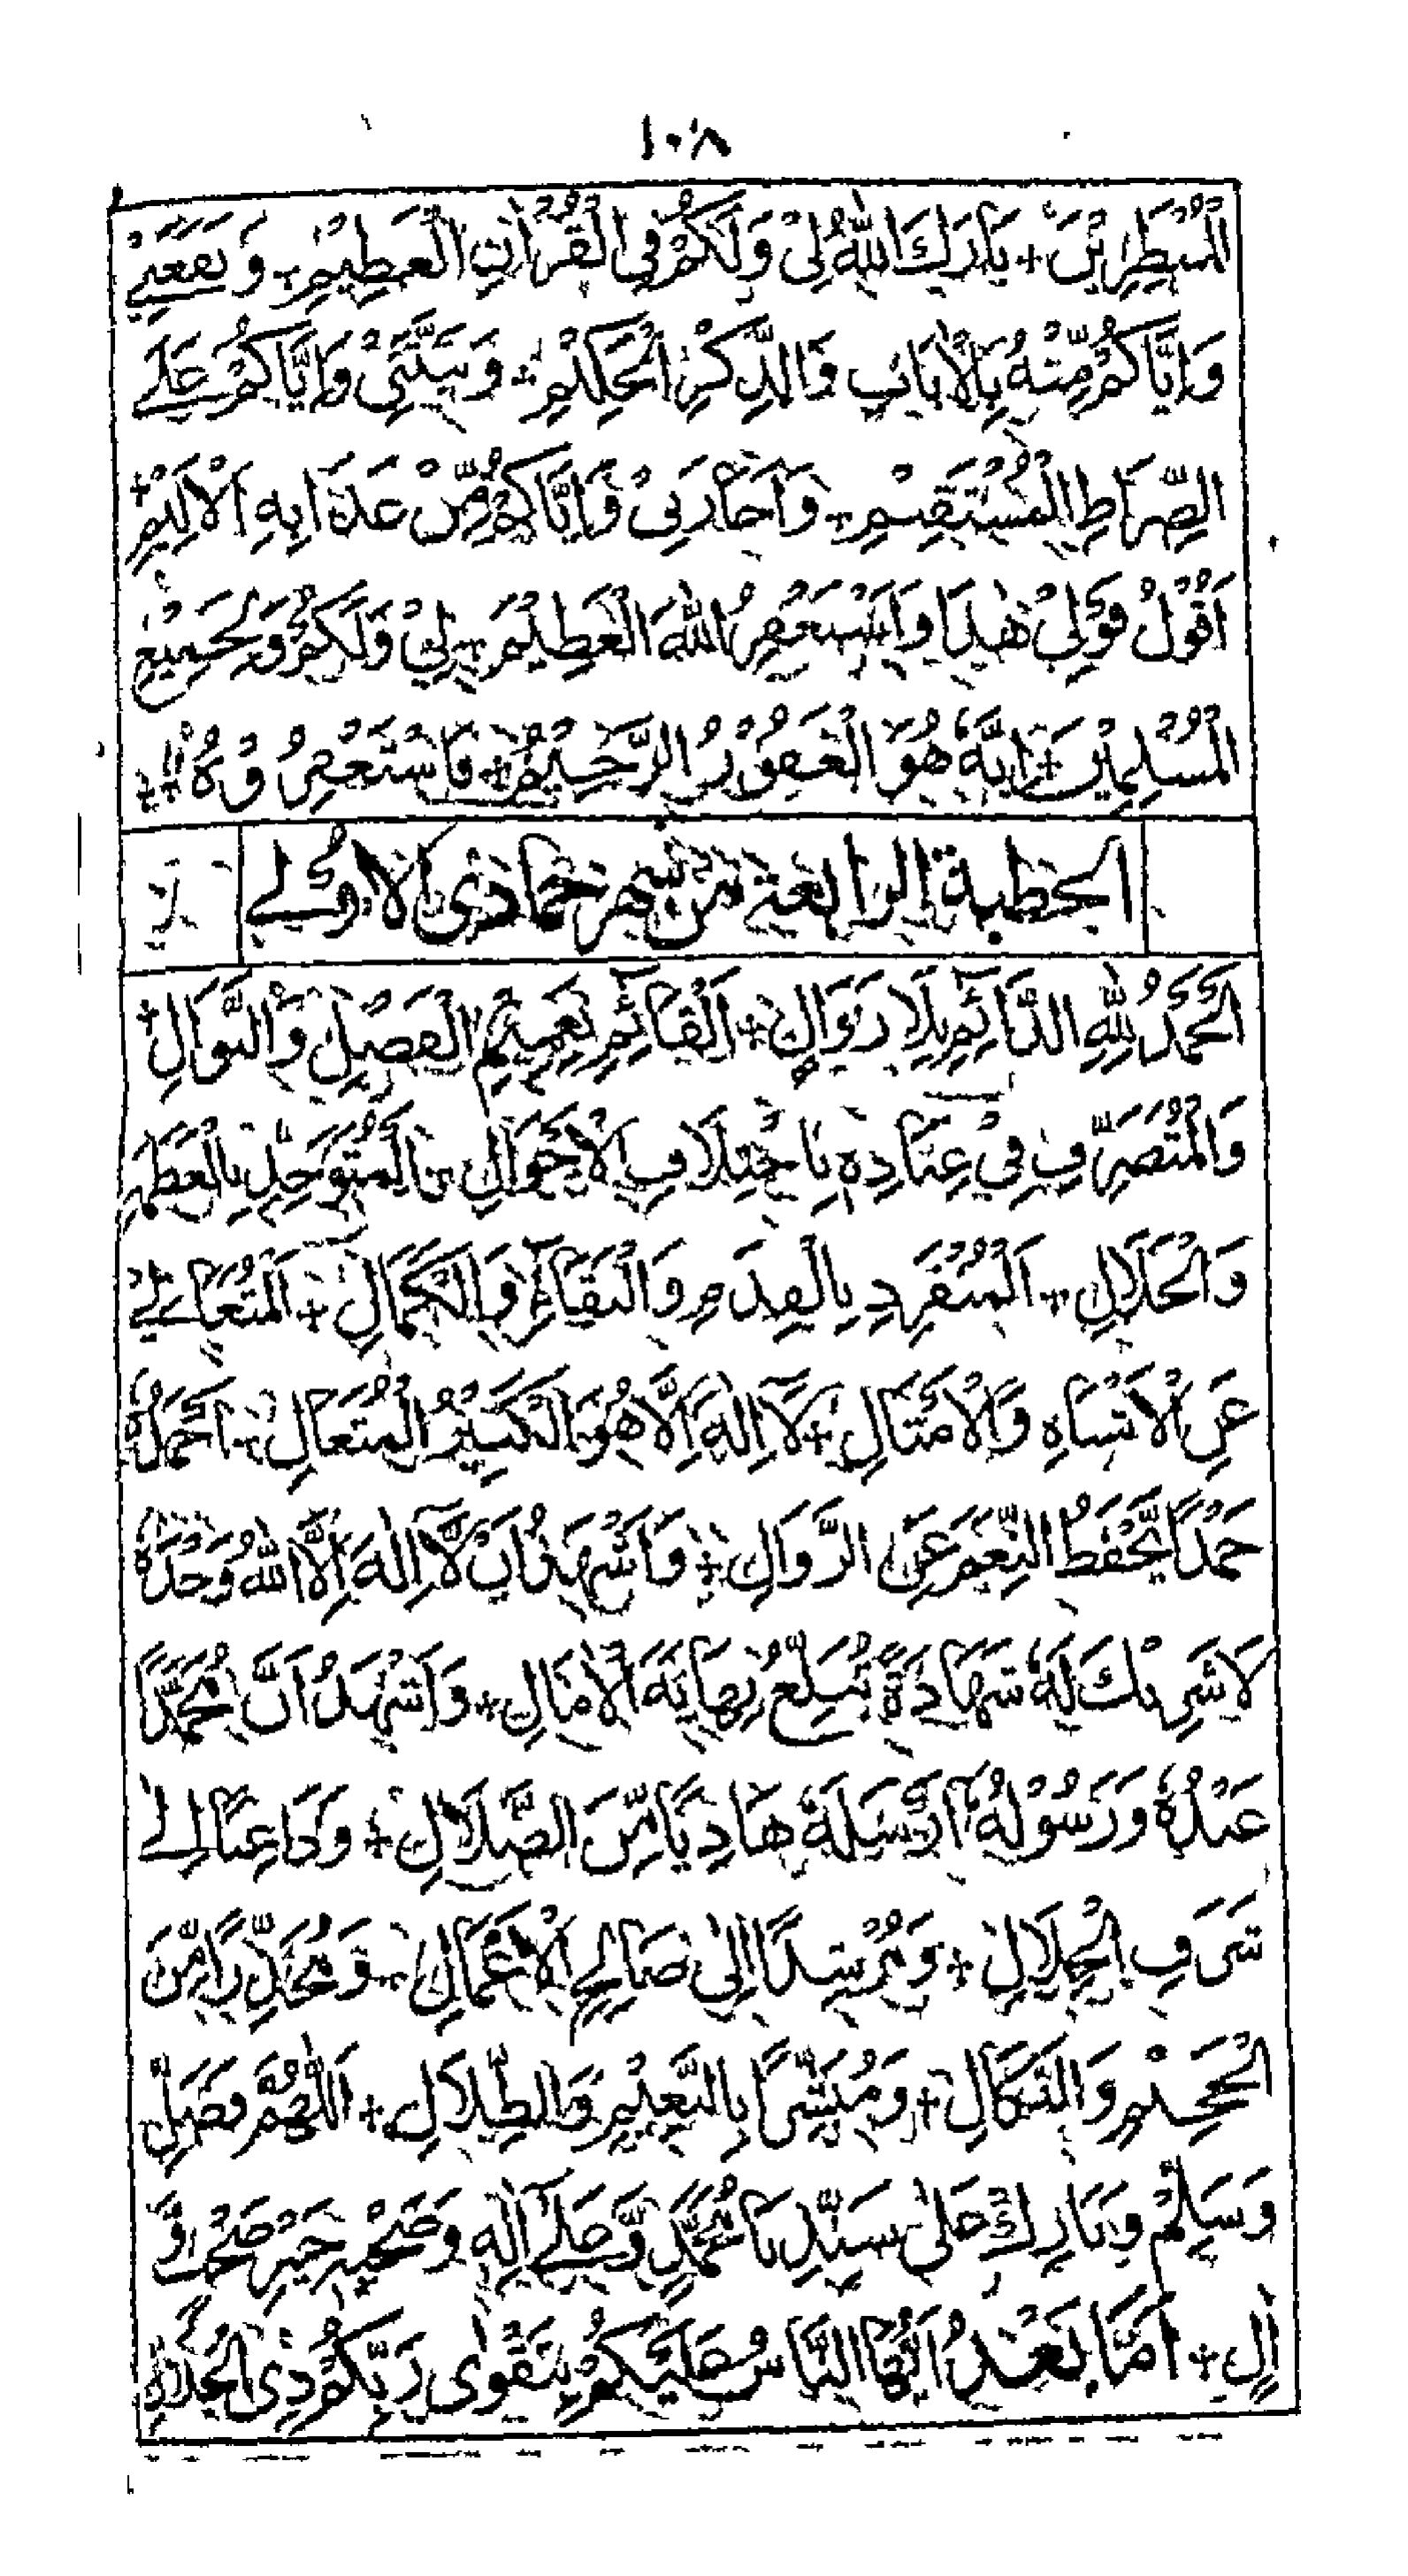 ١٠٨
الْمُنْتَظِرِيْنَ + بَارَكَ اللهُ لِيْ وَلَكُمْ فِي الْقُرْاٰنِ الْعَظِيْمِ + وَنَفَعَنِيْ
وَاِيَّاكُمْ مِّنْهُ بِالْاٰيَاتِ وَالذِّكْرِ الْحَكِيْمِ + وَثَبَّتَنِيْ وَاِيَّاكُمْ عَلَے
الصِّرَاطِ الْمُسْتَقِيْمِ + وَاَجَارَنِيْ وَاِيَّاكُمْ مِّنْ عَذَابِهِ الْاَلِيْمِ +
اَقُوْلُ قَوْلِيْ هٰذَا وَاَسْتَغْفِرُ اللهَ الْعَظِيْمَ + لِيْ وَلَكُمْ وَلِجَمِيْعِ
الْمُسْلِمِيْنَ + اِنَّهٗ هُوَ الْغَفُوْرُ الرَّحِيْمُ + فَاسْتَغْفِرُوْهُ +
الخطبة الرابعة من شهر جمادى الاولے
اَلْحَمْدُ لِلّٰهِ الدَّآئِمِ بِلَا زَوَالٍ + اَلْقَآئِمِ بِعَمِيْمِ الْفَضْلِ وَالنَّوَالِ +
وَالْمُتَصَرِّفِ فِيْ عِبَادِهٖ بِاخْتِلَافِ الْاَحْوَالِ + الْمُتَوَحِّدِ بِالْعَظَمَةِ
وَالْجَلَالِ + اَلْمُنْفَرِدِ بِالْقِدَمِ وَالْبَقَآءِ وَالْكَمَالِ + اَلْمُتَعَالِيْ
عَنِ الْاَشْبَاهِ وَالْاَمْثَالِ + لَآ اِلٰهَ اِلَّا هُوَ الْكَبِيْرُ الْمُتَعَالِ + اَحْمَدُهٗ
حَمْدًا يَّحْفَظُ النِّعَمَ عَنِ الزَّوَالِ + وَاَشْهَدُ اَنْ لَّآ اِلٰهَ اِلَّا اللهُ وَحْدَهٗ
لَا شَرِيْكَ لَهٗ شَهَادَةً نَّبْلُغُ بِهَا غَايَةَ الْاٰمَالِ + وَاَشْهَدُ اَنَّ مُحَمَّدًا
عَبْدُهٗ وَرَسُوْلُهٗ اَرْسَلَهٗ هَادِيًا مِّنَ الضَّلَالِ + وَدَاعِيًا اِلٰے
شَرَفِ الْخِلَالِ + وَمُرْشِدًا اِلٰى صَالِحِ الْاَعْمَالِ + وَمُحَذِّرًا مِّنَ
الْجَحِيْمِ وَالنَّكَالِ + وَمُبَشِّرًا بِالنَّعِيْمِ وَالظِّلَالِ + اَللّٰهُمَّ فَصَلِّ
وَسَلِّمْ وَبَارِكْ عَلٰى سَيِّدِنَا مُحَمَّدٍ وَّعَلٰے اٰلِهٖ وَصَحْبِهٖ خَيْرِ صَحْبٍ وَّ
اٰلٍ + اَمَّا بَعْدُ اَيُّهَا النَّاسُ عَلَيْكُمْ بِتَقْوٰى رَبِّكُمْ ذِى الْجَلَالِ